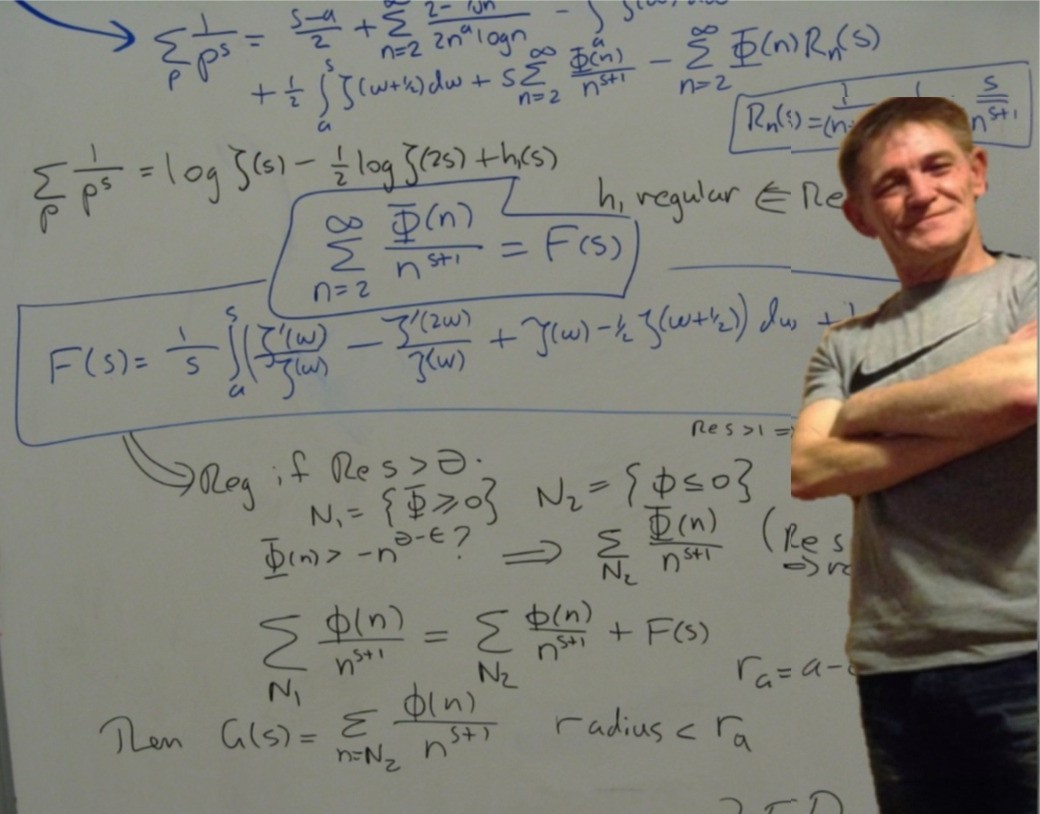 ∑_p 1/p^s = (s-a)/2 + ∑_{n=2}^∞ / 2n^a log n - ∫_a
+ ½ ∫_a^s ζ(w+½)dw + s ∑_{n=2}^∞ Φ(n)/n^{s+1} - ∑_{n=2}^∞ Φ(n) R_n(s)
R_n(s) = 1/(n s/n^{s+1}
∑_p 1/p^s = log ζ(s) - ½ log ζ(2s) + h₁(s)
h₁ regular ∈ Re
∑_{n=2}^∞ Φ(n)/n^{s+1} = F(s)
F(s) = 1/s ∫_a^s (ζ'(w)/ζ(w) - ζ'(2w)/ζ(w) + ζ(w) - ½ ζ(w+½)) dw +
Res > 1 =
⇒ Reg if Re s > Θ.
N₁ = {Φ ≥ 0} N₂ = {ϕ ≤ 0}
Φ(n) > -n^{Θ-ϵ}? ⇒ ∑_{N₂} Φ(n)/n^{s+1} (Re s
⇒
∑_{N₁} ϕ(n)/n^{s+1} = ∑_{N₂} ϕ(n)/n^{s+1} + F(s)
r_a = a -
Then G(s) = ∑_{n=N₂} ϕ(n)/n^{s+1} radius < r_a